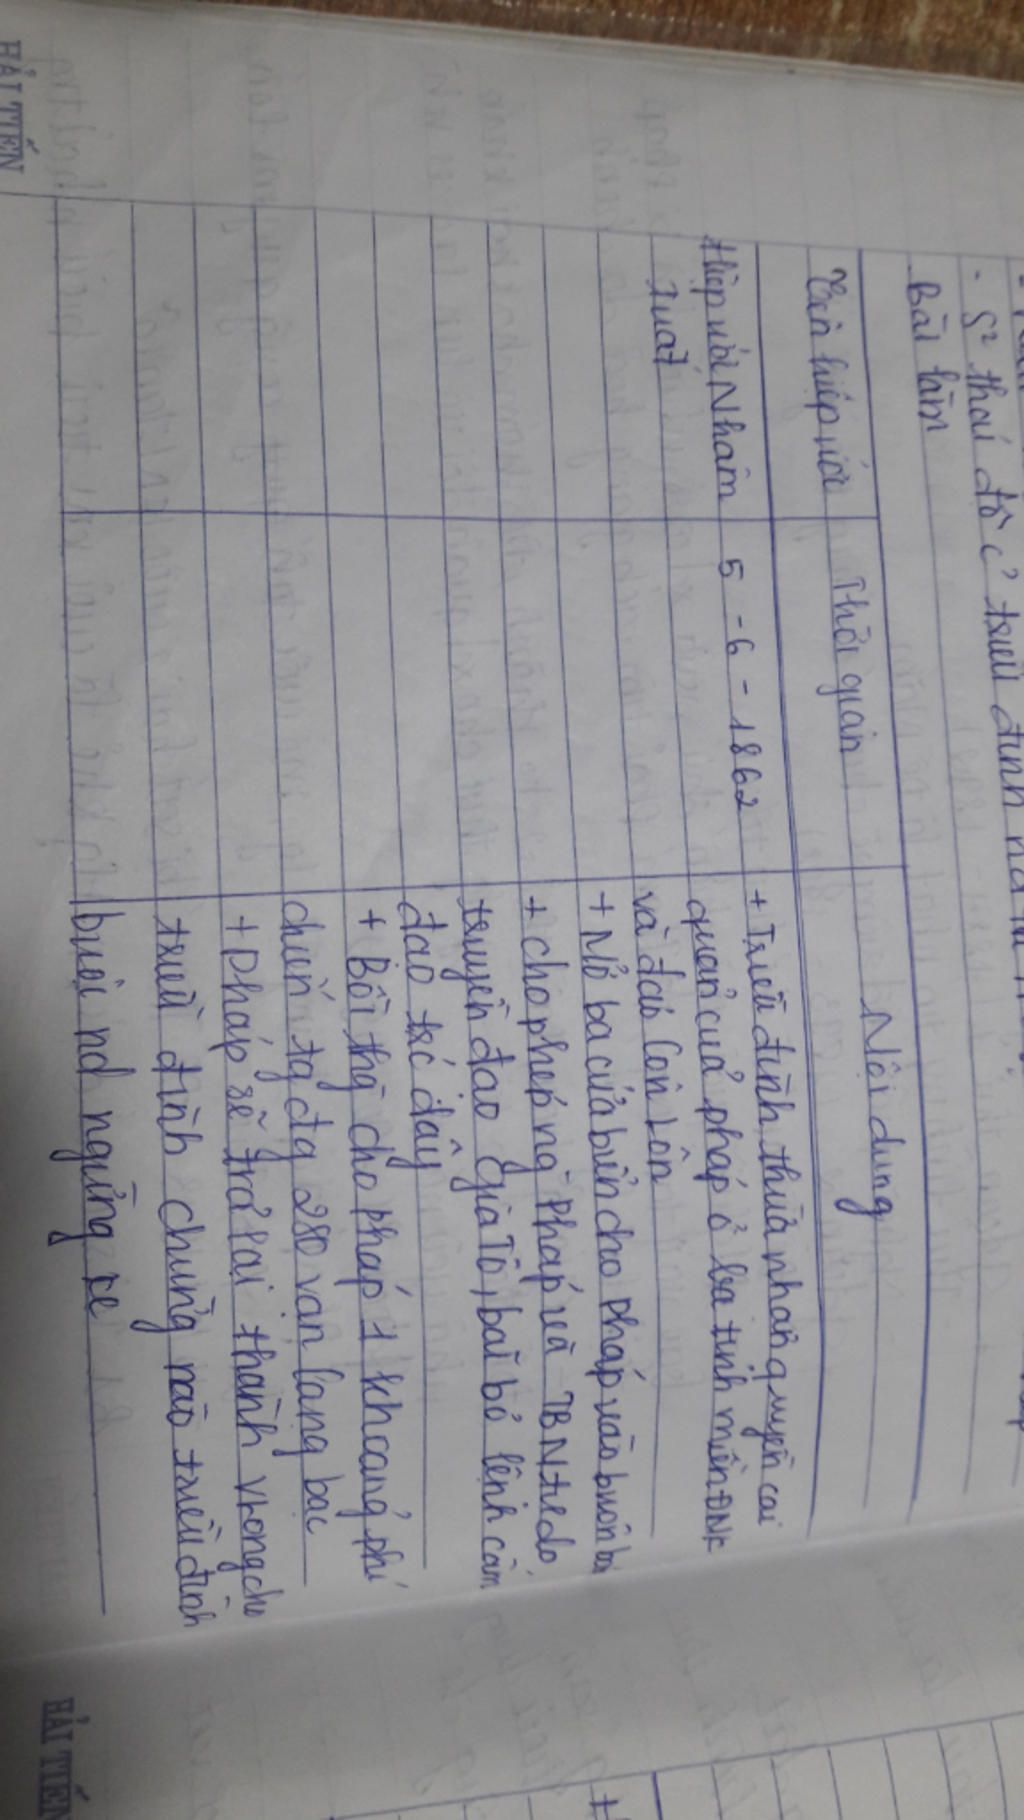 - S² thái độ c² triều đình
Bài làm
Tên hiệp ước Thời gian Nội dung
Hiệp ước Nhâm 5 - 6 - 1862 + Triều đình thừa nhận quyền cai
Tuất quản của pháp ở ba tỉnh miền ĐNK
và đảo Côn Lôn
+ Mở ba cửa biển cho pháp vào buôn bán
+ cho phép ng` Pháp và TBN tự do
truyền đạo Gia Tô, bãi bỏ lệnh cấm
đạo trc đây
+ Bồi thg` cho pháp 1 khoảng phí
chiến tg đg 280 vạn lạng bạc
+ Pháp sẽ trả lại thành V.Long cho
triều đình chừng nào triều đình
buộc nd ngừng k/c
HẢI TIẾN
HẢI TIẾN